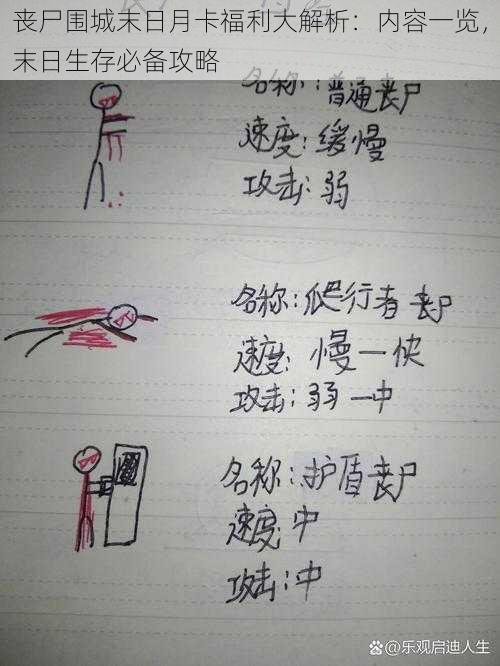 丧尸围城末日月卡福利大解析：内容一览，
末日生存必备攻略
名称：普通丧尸
速度：缓慢
攻击：弱
名称：爬行者丧尸
速度：慢一快
攻击：弱一中
名称：护盾丧尸
速度：中
攻击：中
@乐观启迪人生